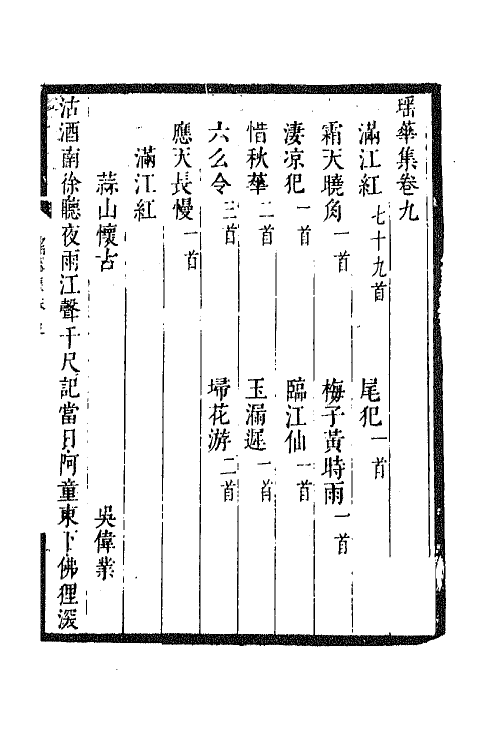 瑶華集卷九
滿江紅七十九首　尾犯一首
霜天曉角一首　梅子黃時雨一首
淒凉犯一首　臨江仙一首
惜秋華二首　玉漏遲一首
六么令三首　埽花游二首
應天長慢一首
滿江紅
蒜山懷古　吳偉業
沽酒南徐聽夜雨江聲千尺記當日阿童東下佛狸深